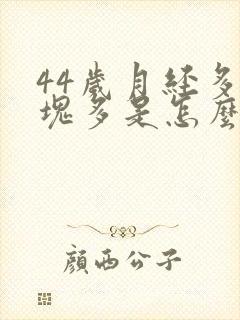 44歲月经多
塊多是怎麼
顏西公子